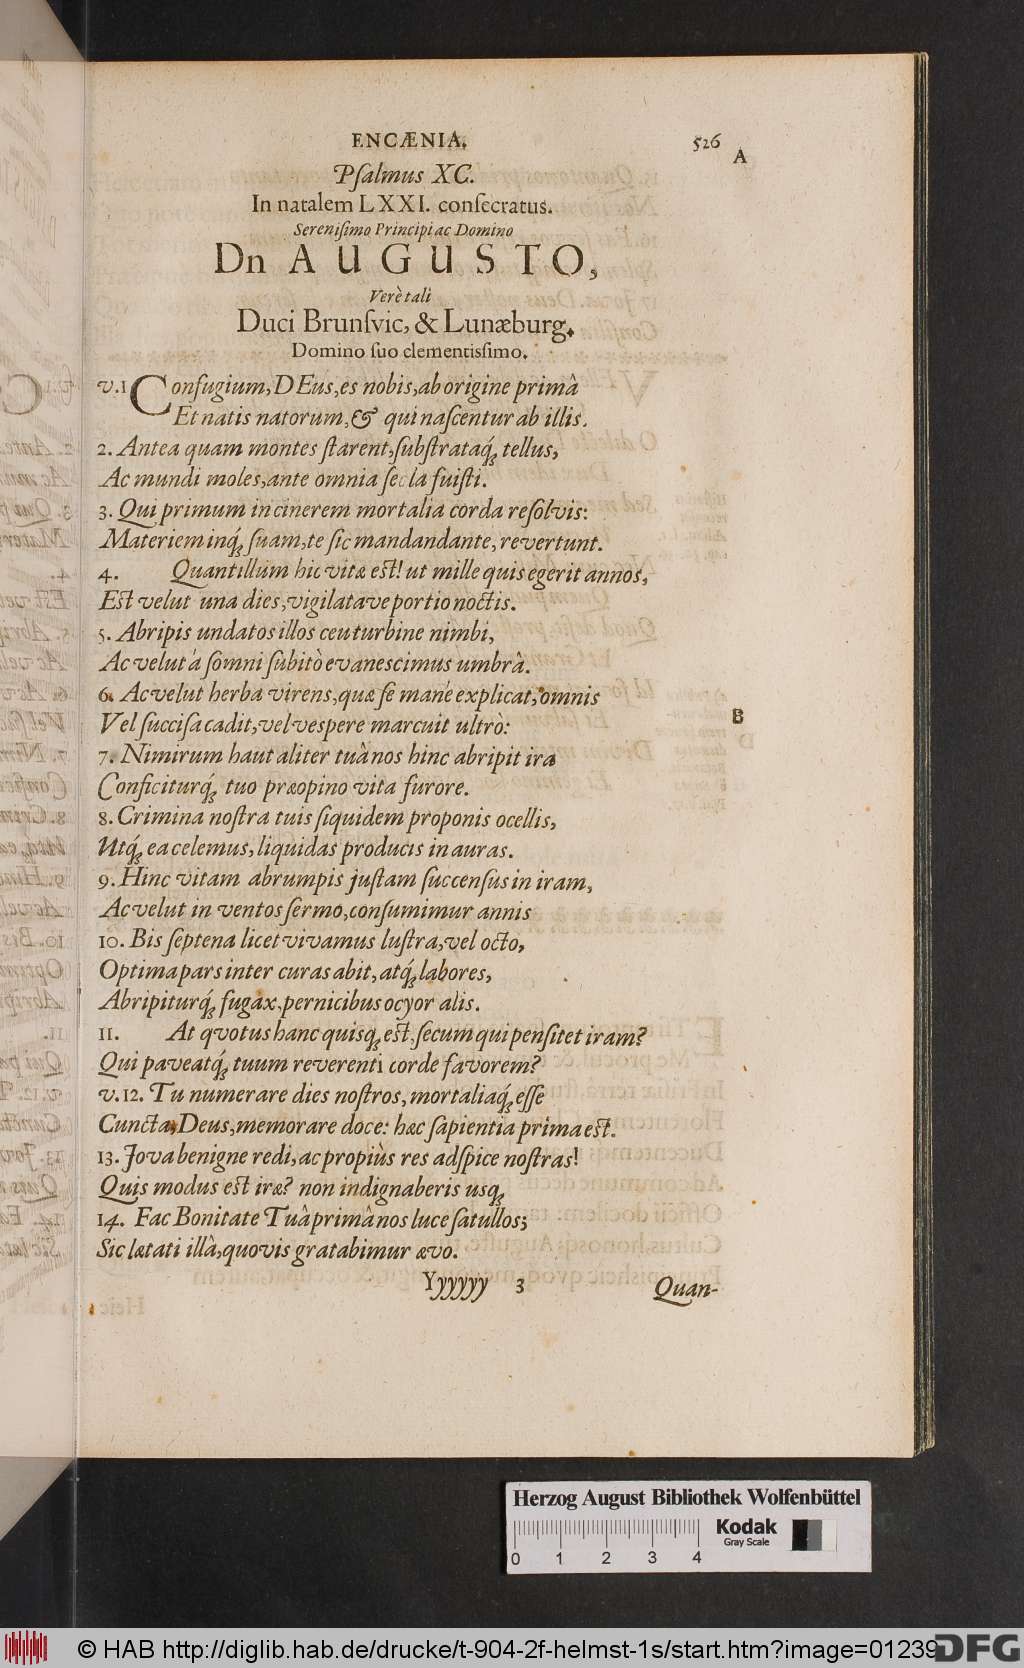 ENCÆNIA. 526
A
Pſalmus XC.
In natalem LXXI. conſecratus.
Sereniſimo Principi ac Domino
Dn AUGUSTO,
Verè tali
Duci Brunſvic, & Lunæburg.
Domino ſuo clementissimo.
v.1 Confugium, DEus, es nobis, ab origine primâ
Et natis natorum, & qui naſcentur ab illis.
2. Antea quam montes ſtarent, ſubſtrataq́; tellus,
Ac mundi moles, ante omnia ſecla fuiſti.
3. Qui primum in cinerem mortalia corda reſolvis:
Materiem inq́; ſuam, te ſic mandandante, revertunt.
4. Quantillum hic vitæ eſt! ut mille quis egerit annos,
Eſt velut una dies, vigilatave portio noctis.
5. Abripis undatos illos ceu turbine nimbi,
Ac velut á ſomni ſubitò evanescimus umbrâ.
6. Ac velut herba virens, quæ ſe mané explicat, omnis
Vel ſucciſa cadit, vel veſpere marcuit ultrò:
B
7. Nimirum haut aliter tuâ nos hinc abripit ira
Conficiturq́; tuo præopino vita furore.
8. Crimina noſtra tuis ſiquidem proponis ocellis,
Utq́; ea celemus, liquidas producis in auras.
9. Hinc vitam abrumpis juſtam ſuccenſus in iram,
Ac velut in ventos ſermo, conſumimur annis
10. Bis ſeptena licet vivamus luſtra, vel octo,
Optima pars inter curas abit, atq́; labores,
Abripiturq́; fugax, pernicibus ocyor alis.
11. At qvotus hanc quisq; eſt, ſecum qui penſitet iram?
Qui paveatq́; tuum reverenti corde favorem?
v.12. Tu numerare dies noſtros, mortaliaq́; eſſe
Cuncta, Deus, memorare doce: hæc ſapientia prima eſt.
13. Jova benigne redi, ac propiùs res adſpice noſtras!
Quis modus eſt iræ? non indignaberis usq;
14. Fac Bonitate Tuâ primâ nos luce ſatullos;
Sic lætati illâ, quovis gratabimur ævo.
Yyyyyy 3 Quan-
Herzog August Bibliothek Wolfenbüttel
0 1 2 3 4
Kodak
Gray Scale
© HAB http://diglib.hab.de/drucke/t-904-2f-helmst-1s/start.htm?image=01239
DFG